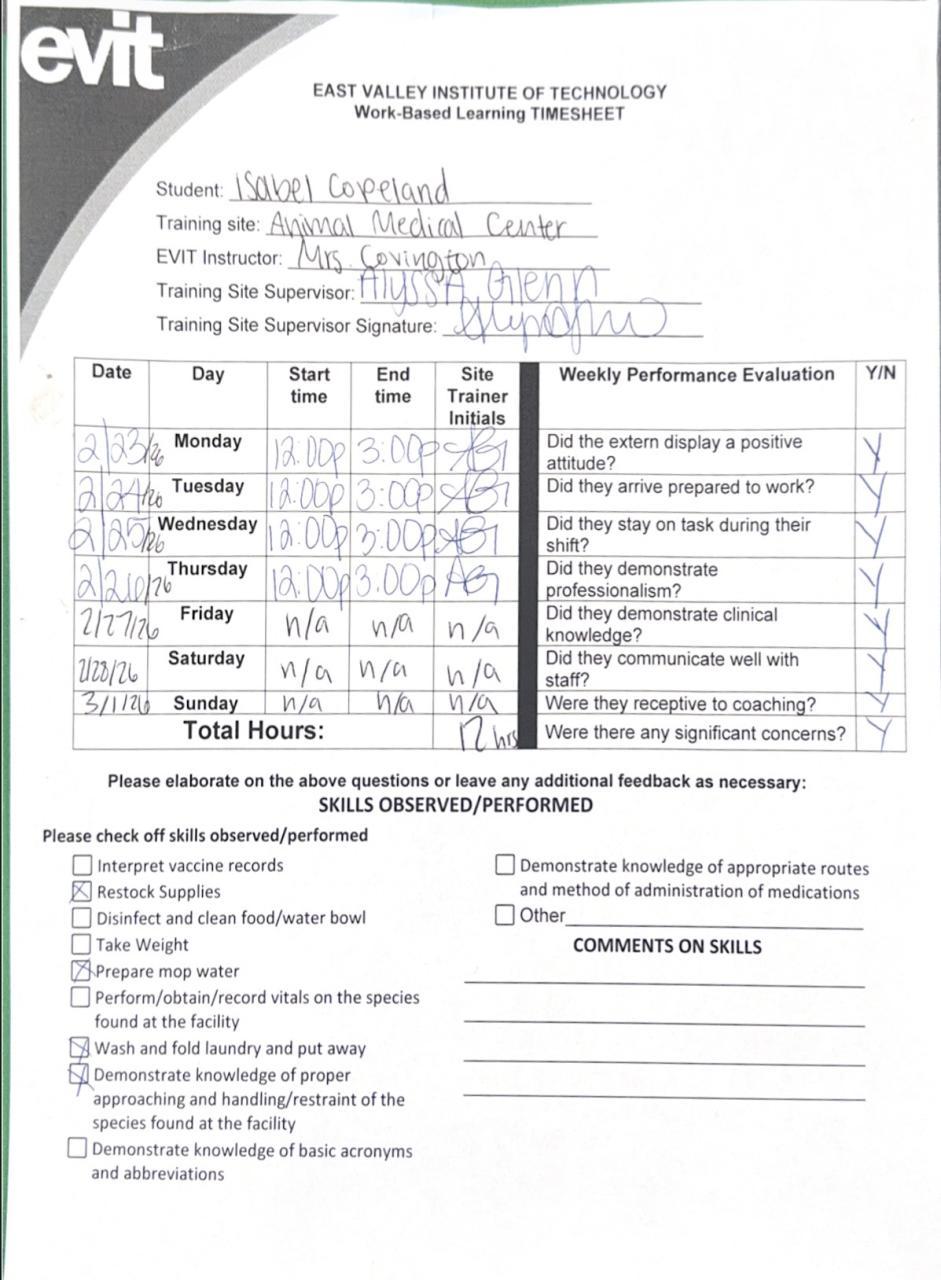 evit
EAST VALLEY INSTITUTE OF TECHNOLOGY
Work-Based Learning TIMESHEET
Student: Isabel Copeland
Training site: Animal Medical Center
EVIT Instructor: Mrs. Covington
Training Site Supervisor: Alyssa Glenn
Training Site Supervisor Signature:
Date Day Start time End time Site Trainer Initials Weekly Performance Evaluation Y/N
2/23/26 Monday 12:00p 3:00p AG Did the extern display a positive attitude? Y
2/24/26 Tuesday 12:00p 3:00p AG Did they arrive prepared to work? Y
2/25/26 Wednesday 12:00p 3:00p AG Did they stay on task during their shift? Y
2/26/26 Thursday 12:00p 3:00p AG Did they demonstrate professionalism? Y
2/27/26 Friday n/a n/a n/a Did they demonstrate clinical knowledge? Y
2/28/26 Saturday n/a n/a n/a Did they communicate well with staff? Y
3/1/26 Sunday n/a n/a n/a Were they receptive to coaching? Y
Total Hours: 12 hrs Were there any significant concerns? Y
Please elaborate on the above questions or leave any additional feedback as necessary:
SKILLS OBSERVED/PERFORMED
Please check off skills observed/performed
Interpret vaccine records
Restock Supplies
Disinfect and clean food/water bowl
Take Weight
Prepare mop water
Perform/obtain/record vitals on the species
found at the facility
Wash and fold laundry and put away
Demonstrate knowledge of proper
approaching and handling/restraint of the
species found at the facility
Demonstrate knowledge of basic acronyms
and abbreviations
Demonstrate knowledge of appropriate routes
and method of administration of medications
Other
COMMENTS ON SKILLS